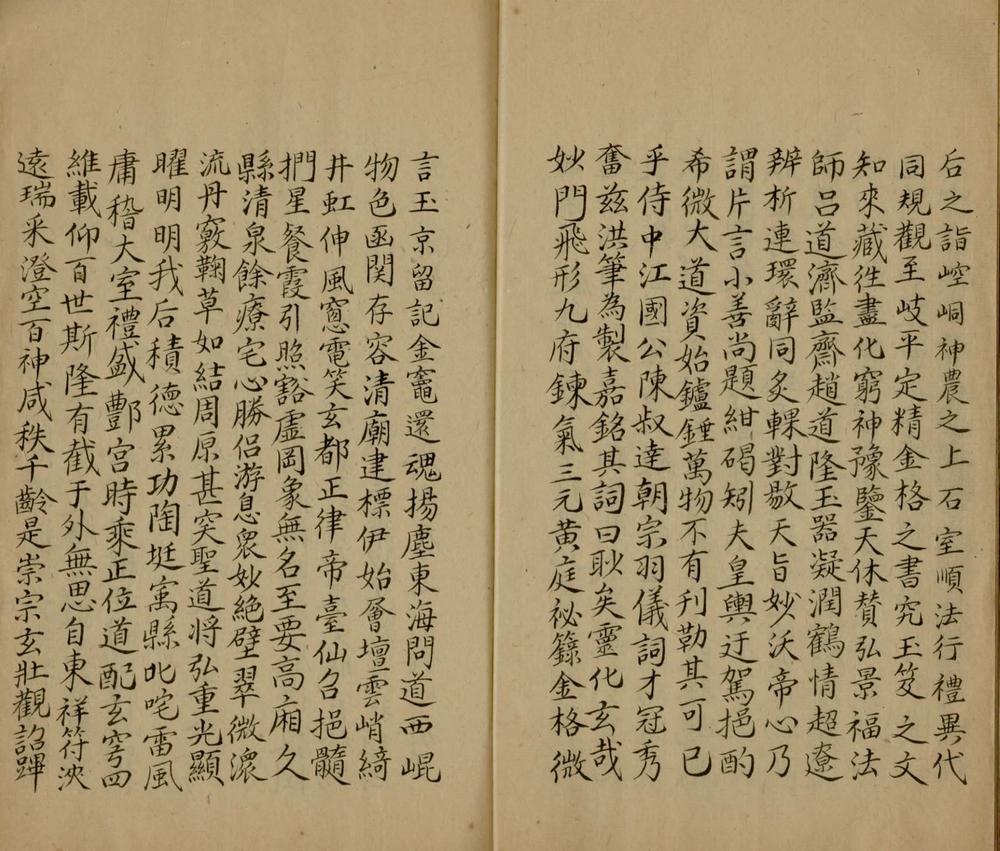 后之詣崆峒神農之上石室順法行禮異代
同規觀至岐平定精金格之書究玉笈之文
知來藏往盡化窮神豫鑒天休賛弘景福法
師呂道濟監齋趙道隆玉器凝潤鶴情超遼
辨析連環辭同炙輠對敭天旨妙沃帝心乃
謂片言小善尚題紺碣矧夫皇輿迂駕挹酌
希微大道資始鑪錘萬物不有刋勒其可已
乎侍中江國公陳叔達朝宗羽儀詞才冠秀
奮茲洪筆為製嘉銘其詞曰眇矣靈化玄哉
妙門飛形九府鍊氣三元黄庭祕籙金格微
言玉京留記金竈還魂揚塵東海問道西崐
物色函関存容清廟建標伊始層壇雲峭綺
井虹伸風窻電笑玄都正律帝臺仙召挹髓
捫星餐霞引照豁虛罔象無名至要高廂久
縣清泉餘療宅心勝侣游息衆妙絶壁翠微澴
流丹竅鞠草如結周原甚突聖道将弘重光顯
曜明明我后積徳累功陶埏寓縣叱咤雷風
庸稽大室禮盛酆宮時乘正位道配玄穹四
維載仰百世斯隆有截于外無思自東祥符泱
遠瑞采澄空百神咸秩千齡是崇宗玄壯觀詔蹕